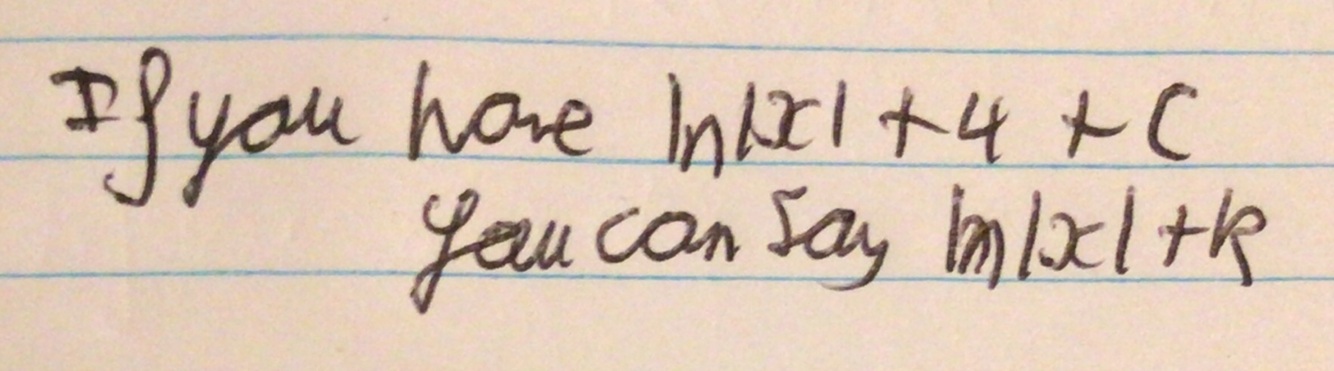 If you have ln|x| + 4 + C
you can say ln|x| + k